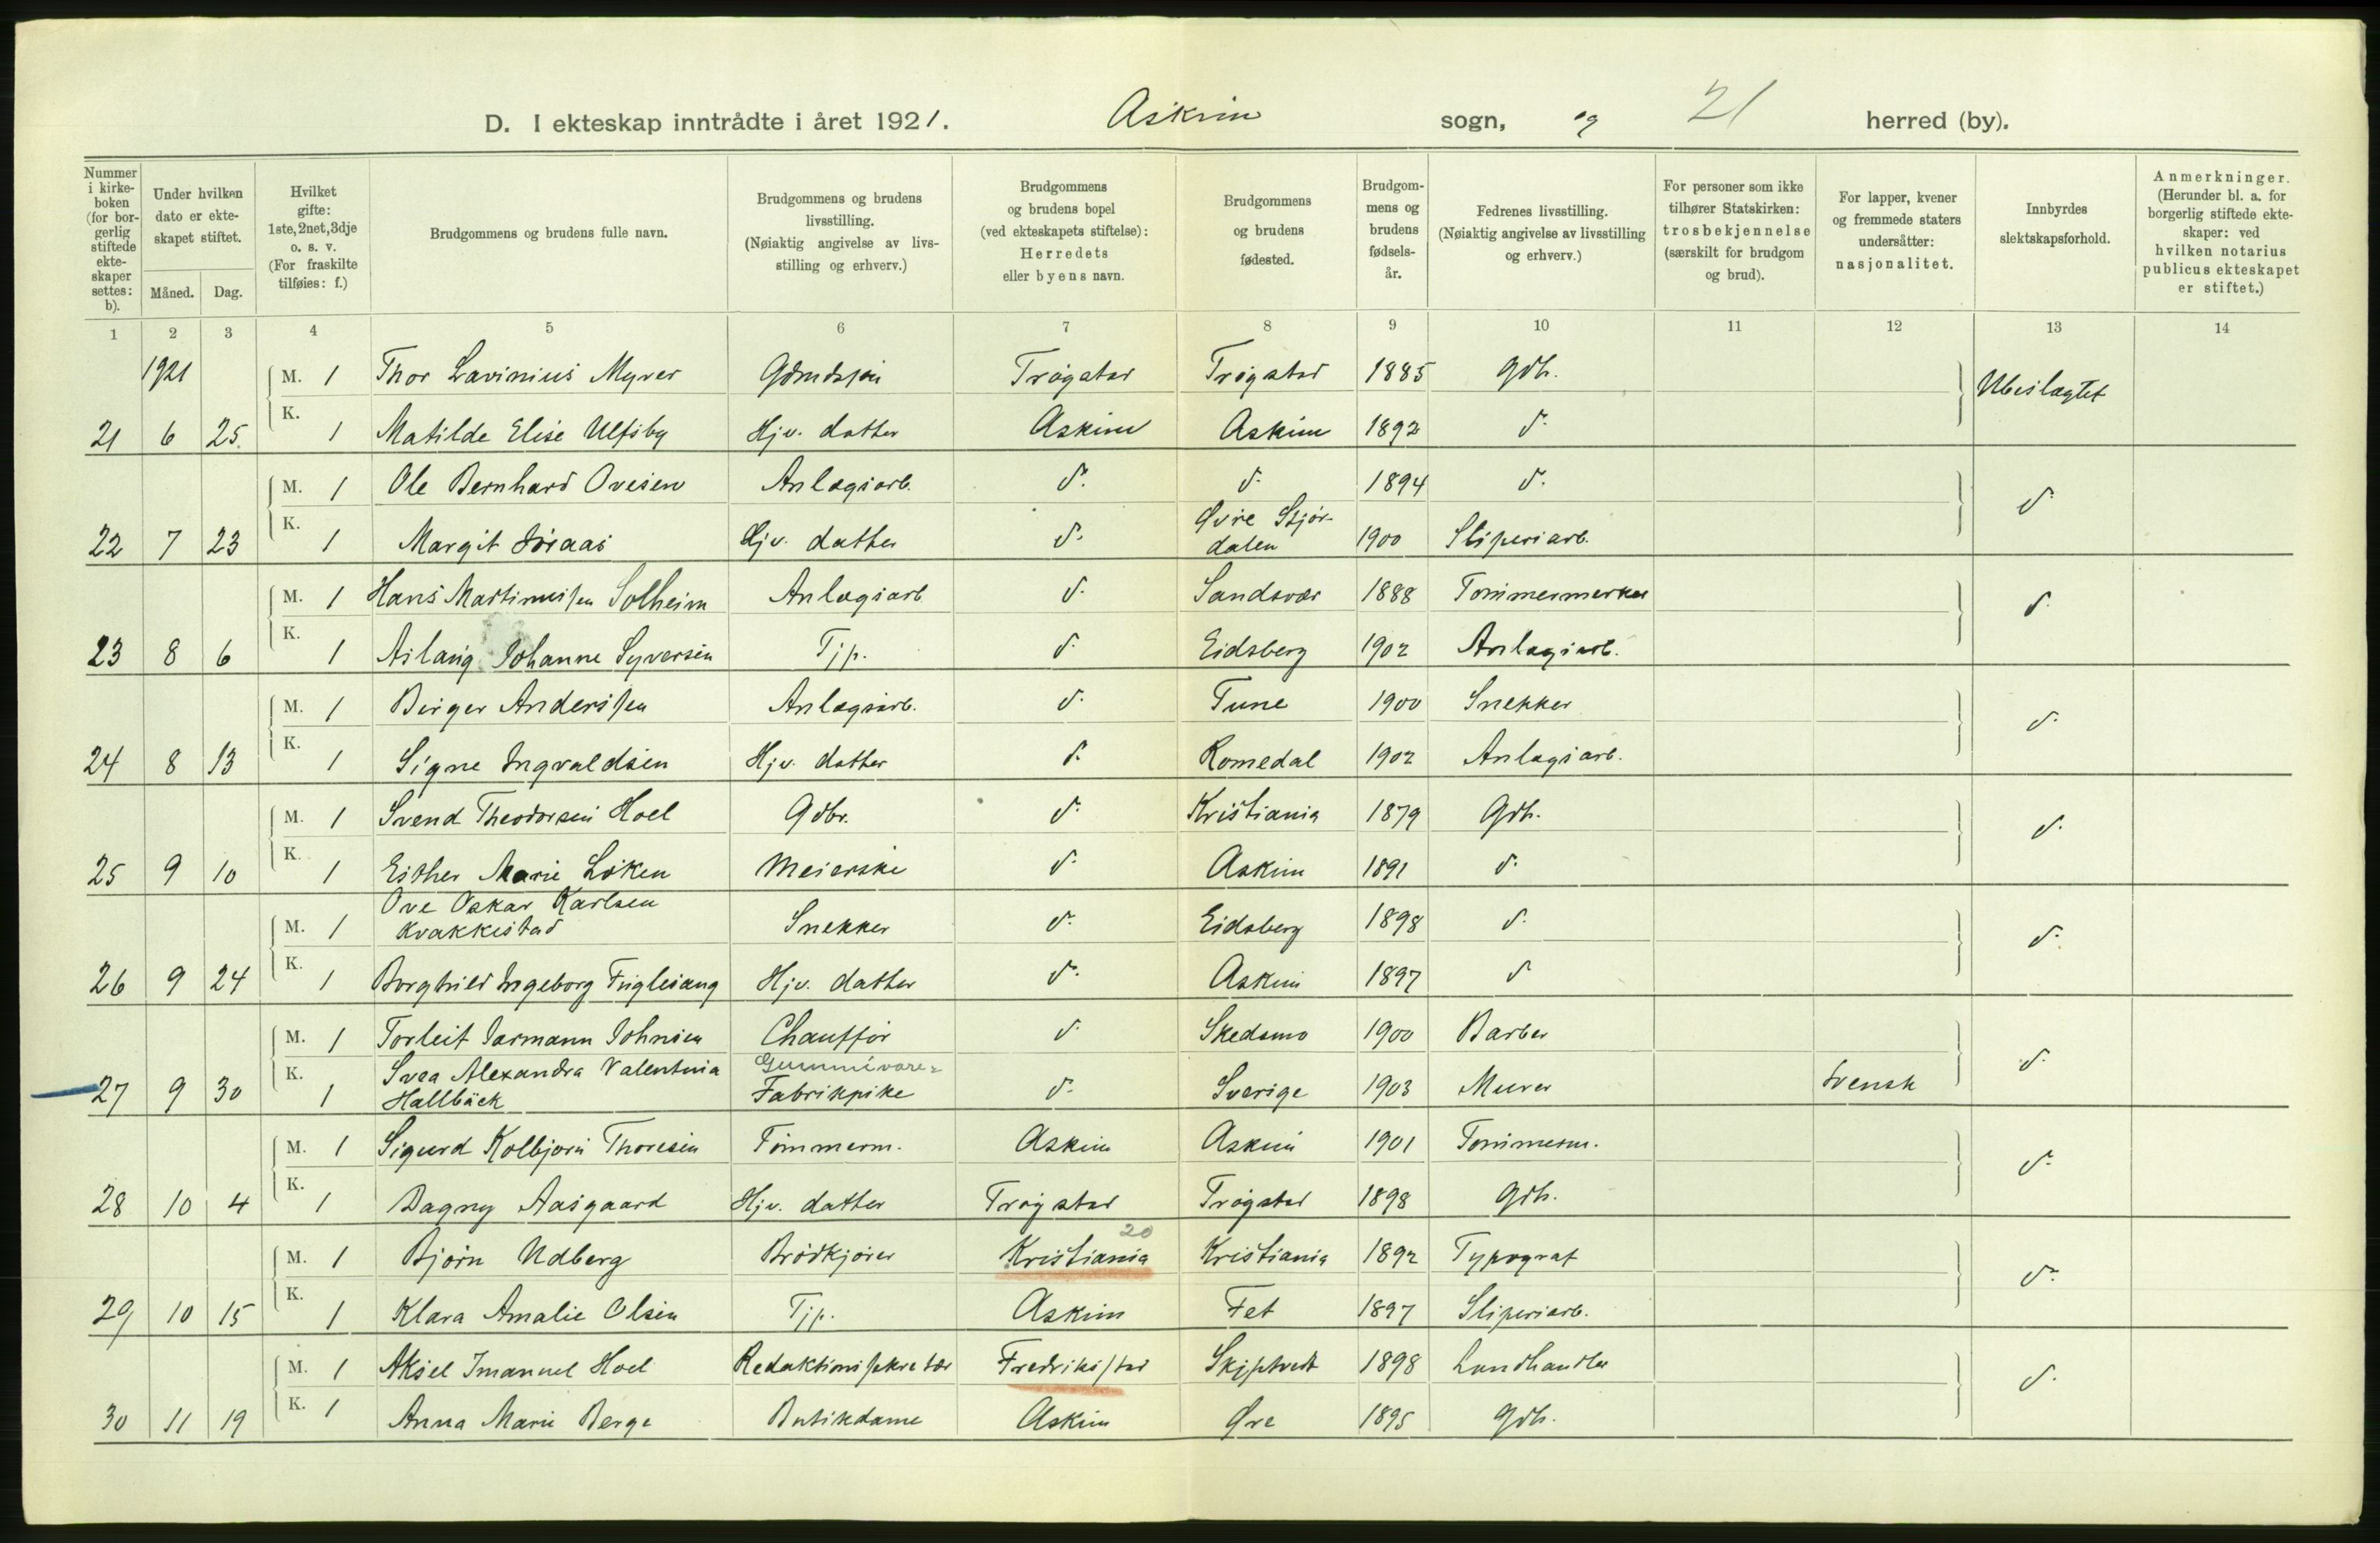 D. I ekteskap inntrådte i året 1921. Askim sogn, og 21 herred (by).
Nummer i kirkeboken (for borgerlig stiftede ekteskaper settes: b).
Under hvilken dato er ekteskapet stiftet.
Måned. Dag.
Hvilket gifte: 1ste, 2net, 3dje o. s. v. (For fraskilte tilføies: f.)
Brudgommens og brudens fulle navn.
Brudgommens og brudens livsstilling. (Nøiaktig angivelse av livsstilling og erhverv.)
Brudgommens og brudens bopel (ved ekteskapets stiftelse): Herredets eller byens navn.
Brudgommens og brudens fødested.
Brudgommens og brudens fødselsår.
Fedrenes livsstilling. (Nøiaktig angivelse av livsstilling og erhverv.)
For personer som ikke tilhører Statskirken: trosbekjennelse (særskilt for brudgom og brud).
For lapper, kvener og fremmede staters undersåtter: nasjonalitet.
Innbyrdes slektskapsforhold.
Anmerkninger. (Herunder bl. a. for borgerlig stiftede ekteskaper: ved hvilken notarius publicus ekteskapet er stiftet.)
1 2 3 4 5 6 7 8 9 10 11 12 13 14
1921 M. 1 Thor Lavinius Myrer Trøgstad Trøgstad 1885 Gdb. Ubeslægtet
21 6 25. K. 1 Matilde Elise Ulfsby Hjv. datter Askim Askim 1892 d.
M. 1 Ole Bernhard Ovesen Anlægsarb. d. d. 1894 d. d.
22 7 23 K. 1 Margit Hjv. datter d. Øvre Stjørdalen 1900 Sliperiarb.
M. 1 Hans Martinussen Solheim Anlægsarb. d. Sandsvær 1888 Tømmermerker d.
23 8 6 K. 1 Aslaug Johanne Syversen Tjp. d. Eidsberg 1902 Anlægsarb.
M. 1 Birger Anderssen Anlægsarb. d. Tune 1900 Snekker d.
24 8 13 K. 1 Signe Ingvaldsen Hjv. datter d. Romedal 1902 Anlægsarb.
M. 1 Svend Theodorsen Hoel Gdbr. d. Kristiania 1879 Gdb. d.
25 9 10 K. 1 Esther Marie Løken Meierske d. Askim 1891 d.
M. 1 Ove Oskar Karlsen Kvakkestad Snekker d. Eidsberg 1898 d. d.
26 9 24 K. 1 Borghild Ingeborg Fuglesang Hjv. datter d. Askim 1897 d
M. 1 Torleif Jarmann Johnsen Chauffør d. Skedsmo 1900 Barber d.
27 9 30 K. 1 Svea Alexandra Valentina Hallbäck Gummivare- Fabrikpike d. Sverige 1903 Murer Svensk
M. 1 Sigurd Kolbjørn Thoresen Tømmerm. Askim Askim 1901 Tømmerm. d.
28 10 4 K. 1 Dagny Aasgaard Hjv. datter Trøgstad Trøgstad 1898 Gdb.
20
M. 1 Bjørn Udberg Brødkjører Kristiania Kristiania 1892 Typograf d.
29 10 15 K. 1 Klara Amalie Olsen Tjp. Askim Fet 1897 Sliperiarb.
M. 1 Aksel Imanuel Hoel Redaktionssekretær Fredriksstad Skiptvedt 1898 Landhandler d.
30 11 19 K. 1 Anna Marie Berge Butikdame Askim Øre 1895 Gdb.